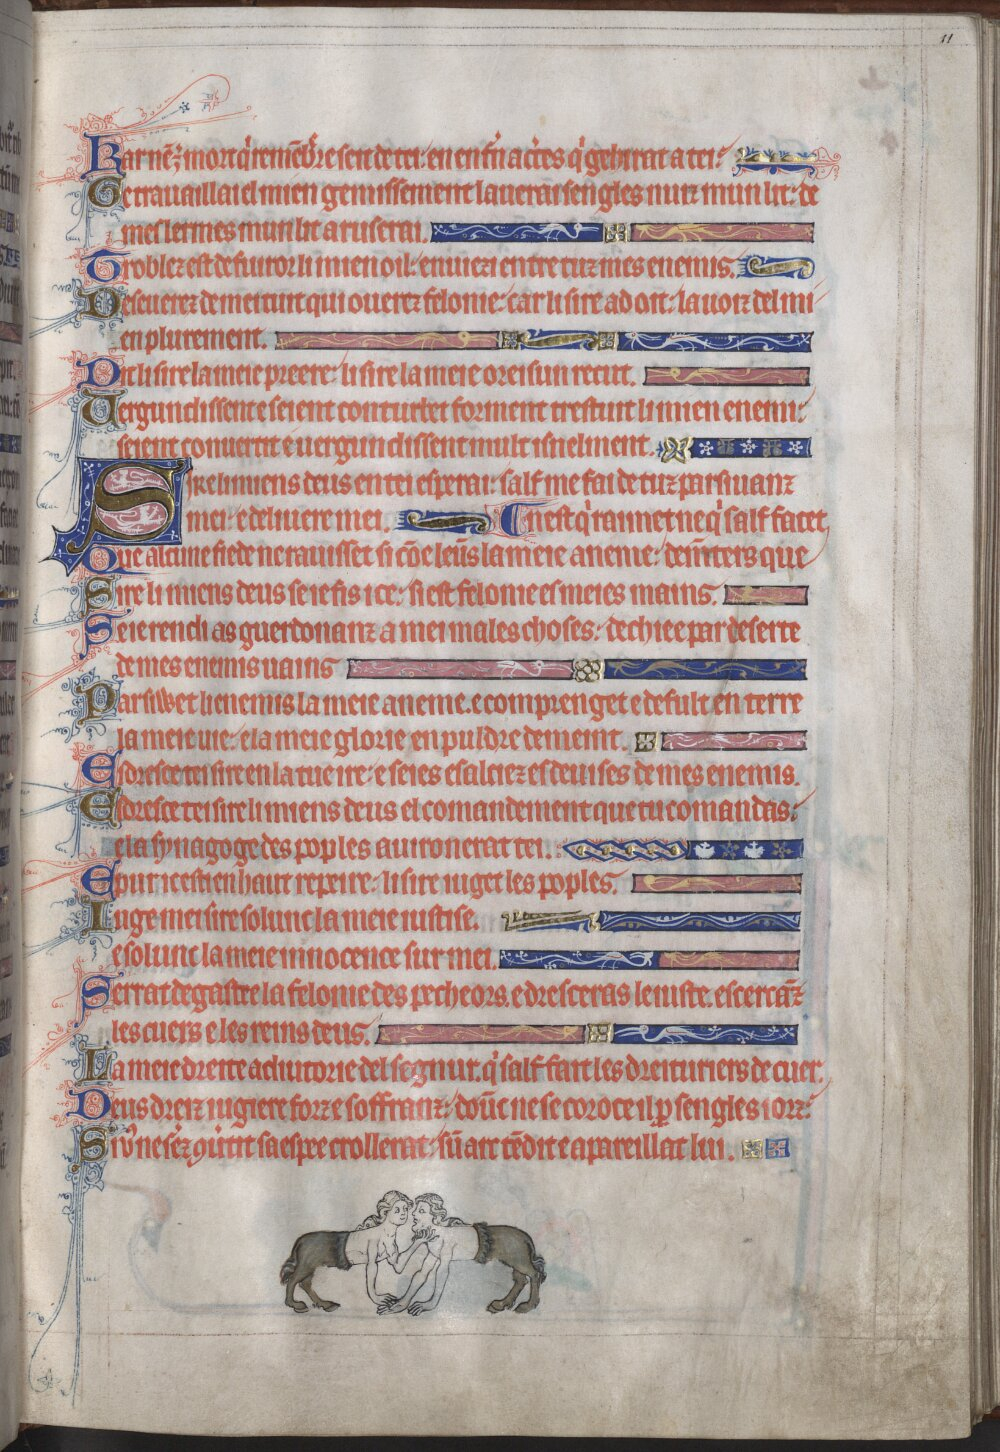 11
Kar nẽz mort q̃ remẽbre seit de tei: en enfn acĩes q̃ gehirat a tei:
Ge travaillai el mien gemissement laverai sengles nuiz mun lit: de
mes lermes mun lit aruserai.
Troblez est de fuiror li mien oil: enviezi entre tuz mes enemis.
Desevrez de mei tuit qui overez felonie: car li sire ad oit: la voiz del mi
en plurement.
Oit li sire la meie preere: li sire la meie oreisun receut.
Vergundissent e seient conturbet forment trestuit li mien enemi:
seient convertit e vergundissent mult isnelment.
Sire li miens deus en tei esperai: salf me fai de tuz parsivanz
mei: e delivere mei. Cil nest q̃ raimet ne q̃ salf facet,
Que alcune fiede ne ravisset si cõe leũs la meie aneme: demẽters que
Sire li miens deus se ie fis ice: si est felonie es meies mains.
Se ie rendi as guerdonanz a mei males choses: dechiee par deserte
de mes enemis vains
Parsiwet li enemis la meie aneme. e comprenget e defult en terre
la meie vie: e la meie glorie en puldre demeint.
Esdresce tei sire en la tue ire: e seies esalciez es devises de mes enemis.
Esdresce tei sire li miens deus el comandement que tu comandas:
e la synagoge des poples avironerat tei.
E pur icest en haut repeire: li sire iuget les poples.
Iuge mei sire solunc la meie iustise.
e solunc la meie innocence sur mei.
Serrat degastee la felonie des pecheors. e dresceras le iuste. escercãz
les cuers e les reins deus.
La meie dreite adiutorie del segnur. q̃ salf fait les dreituriers de cuer.
Deus dreiz iugiere forz e soffranz: dõc ne se coroce il p̱ sengles iorz:
Si vꝰ ne sez qũtit sa espee crollerat: sũ arc tẽdit e apareillat lui.